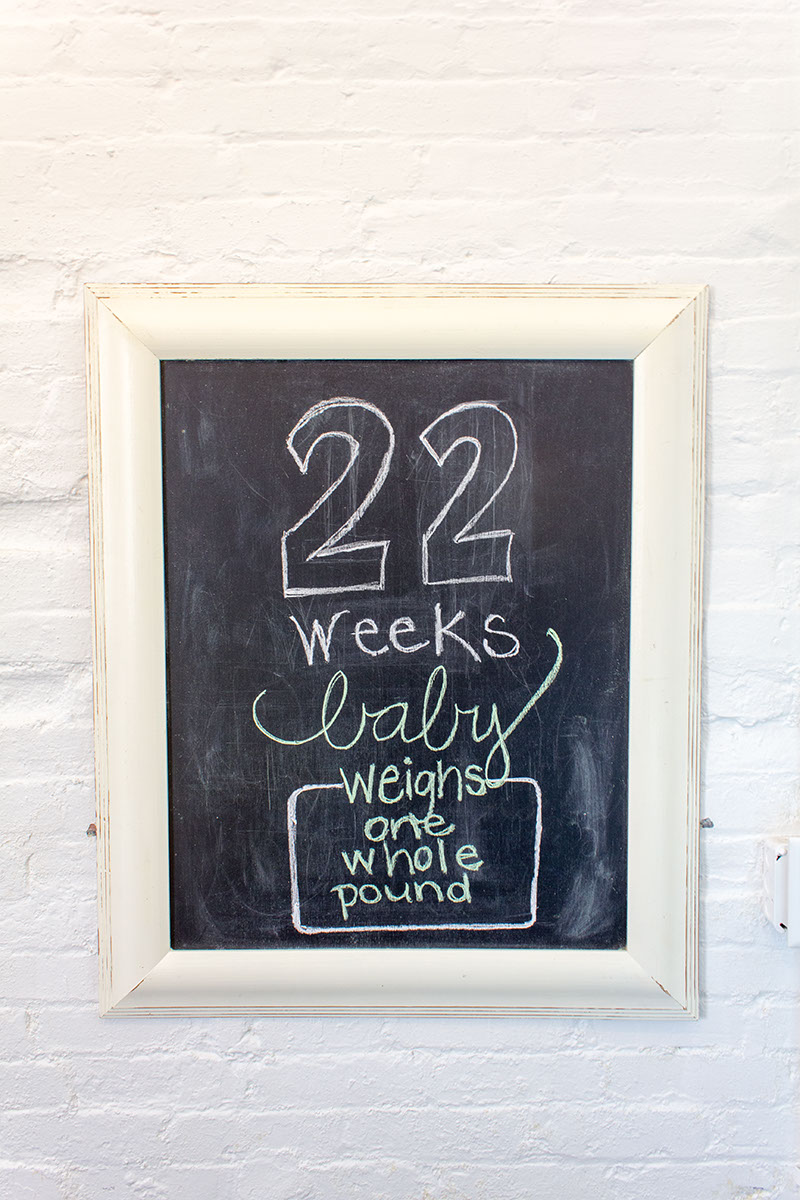 22
weeks
baby
weighs
one
whole
pound